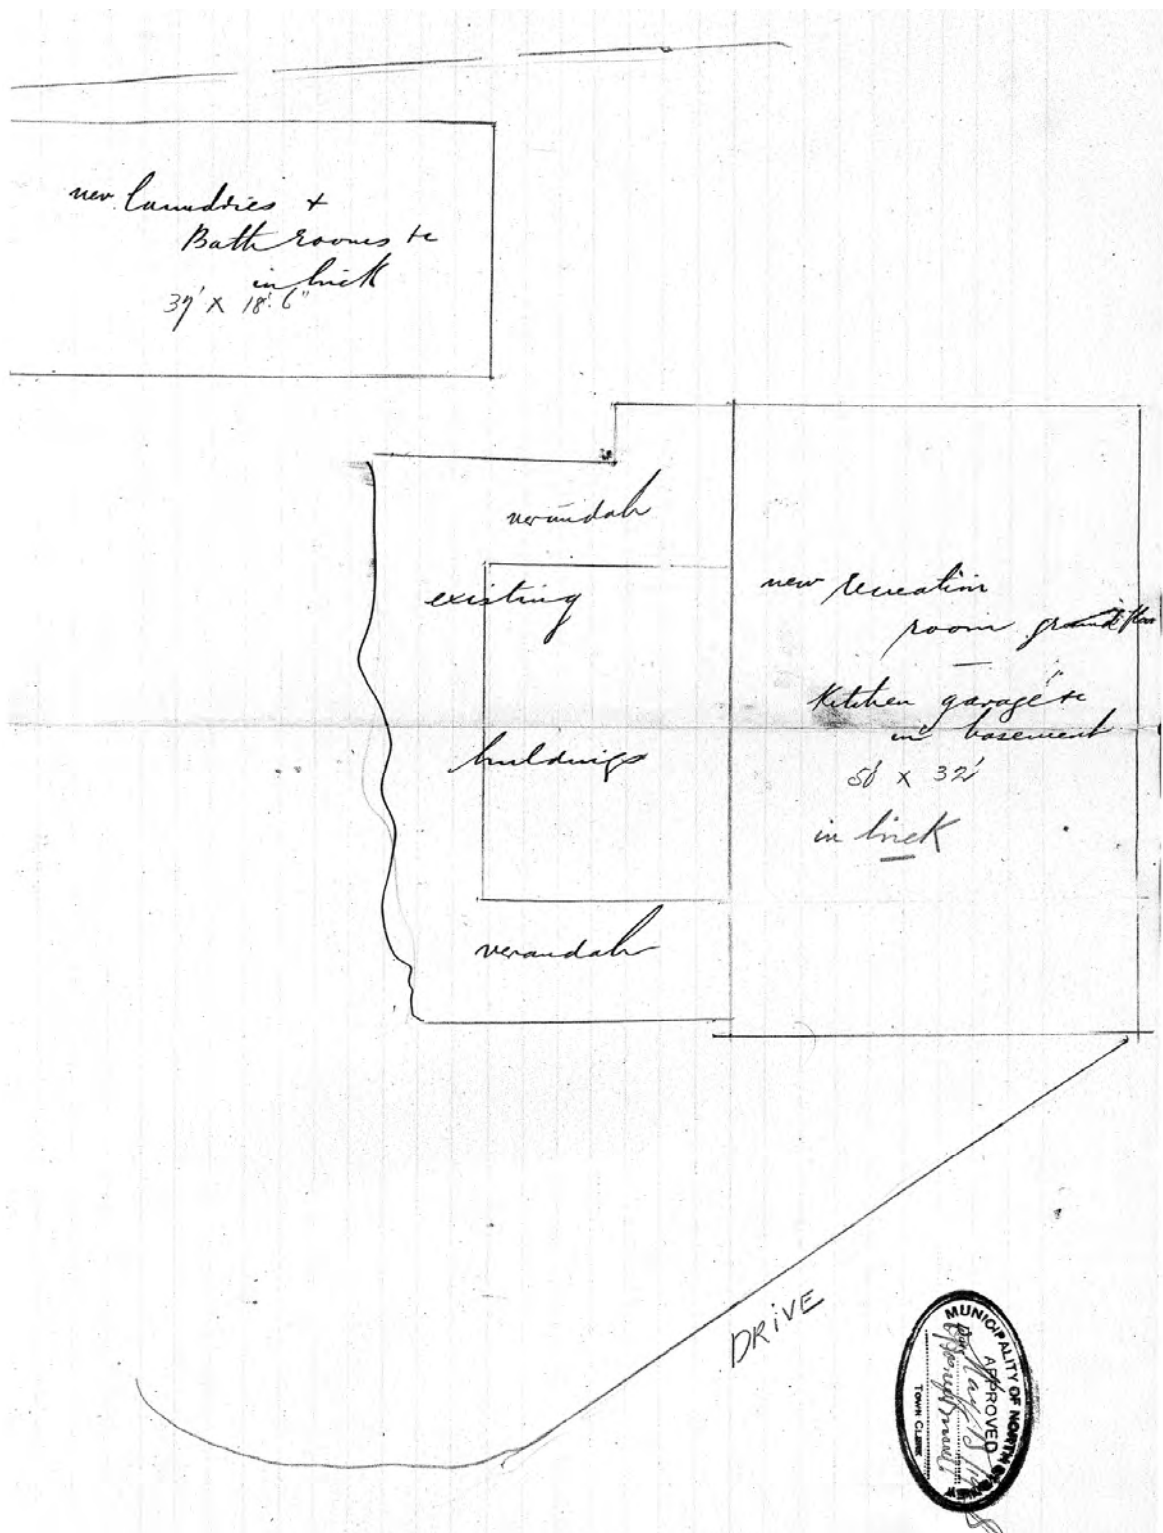 new laundries +
Bath rooms &c
in brick
37' x 18'.6"
verandah
existing
buildings
verandah
new recreation
room ground floor
Kitchen garage &c
in basement
50' x 32'
in brick
DRIVE
MUNICIPALITY OF NORTH SYDNEY
APPROVED
May
TOWN CLERK